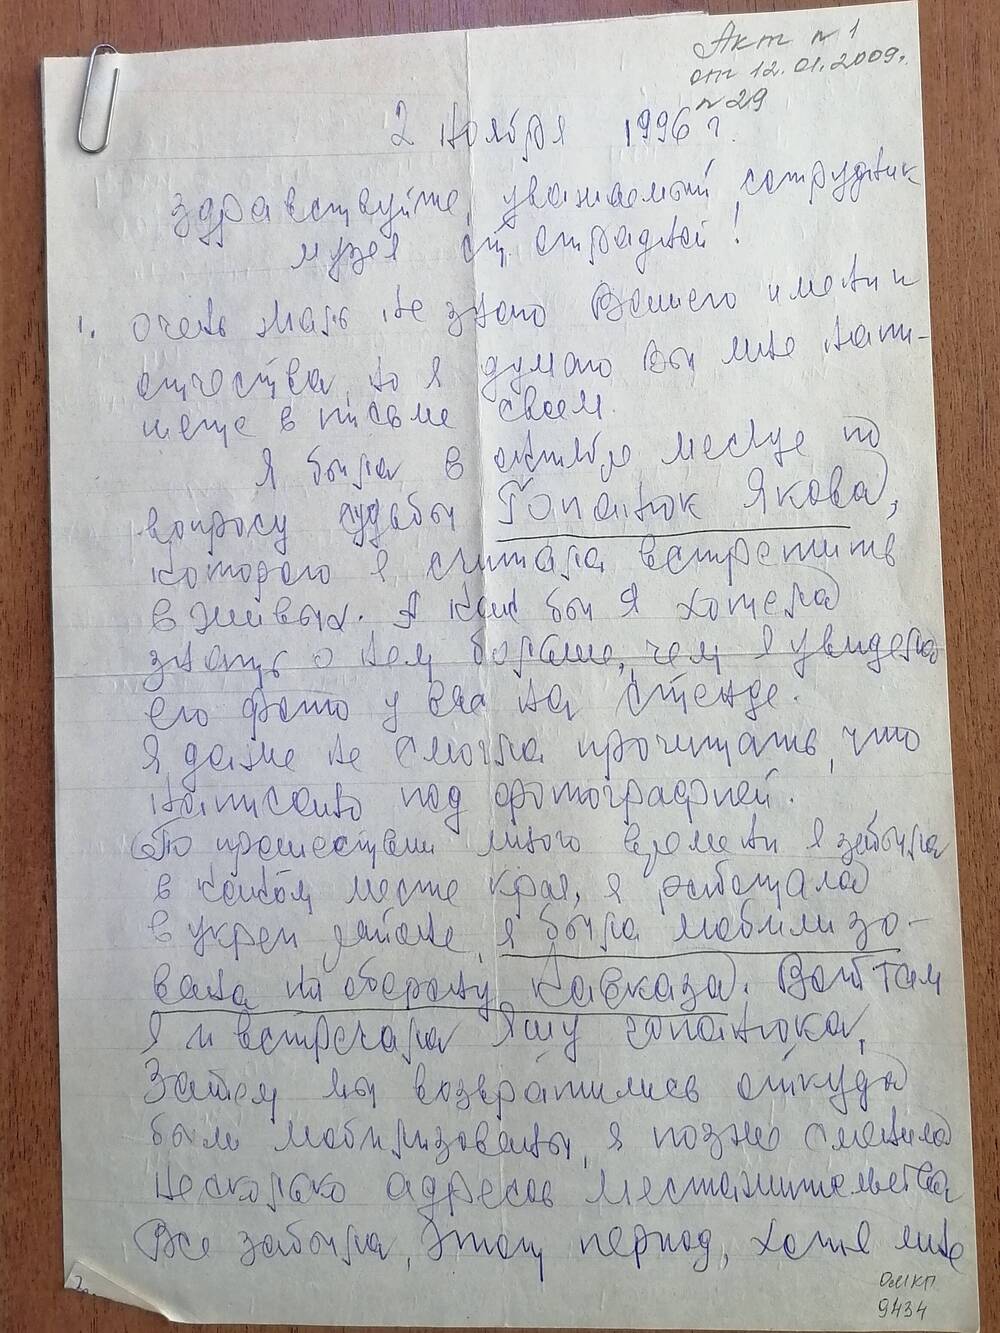 Акт № 1
от 12.01.2009г.
№ 29
2 ноября 1996 г.
Здравствуйте, уважаемый сотрудник
музея ст. Отрадной!
1. Очень жаль не знаю Вашего имени и
отчества, но я думаю Вы мне напи-
шете в письме своем.
Я была в октябре месяце по
вопросу судьбы Гопанюк Якова,
которого я считала встретить
в живых. А как бы я хотела
знать о нем больше, чем я увидела
его фото у вас на стенде.
Я даже не смогла прочитать, что
написано под фотографией.
По прошествии много времени я забыла
в каком месте края, я работала
в укреп районе, я была мобилизо-
вана на оборону Кавказа. Вот там
я и встречала Яшу Гопанюка,
Затем мы возвратились откуда
были мобилизованы, я позже сменила
несколько адресов местожительства
Все забыла, этот период, хотя мне
2.
ОМКП
9434